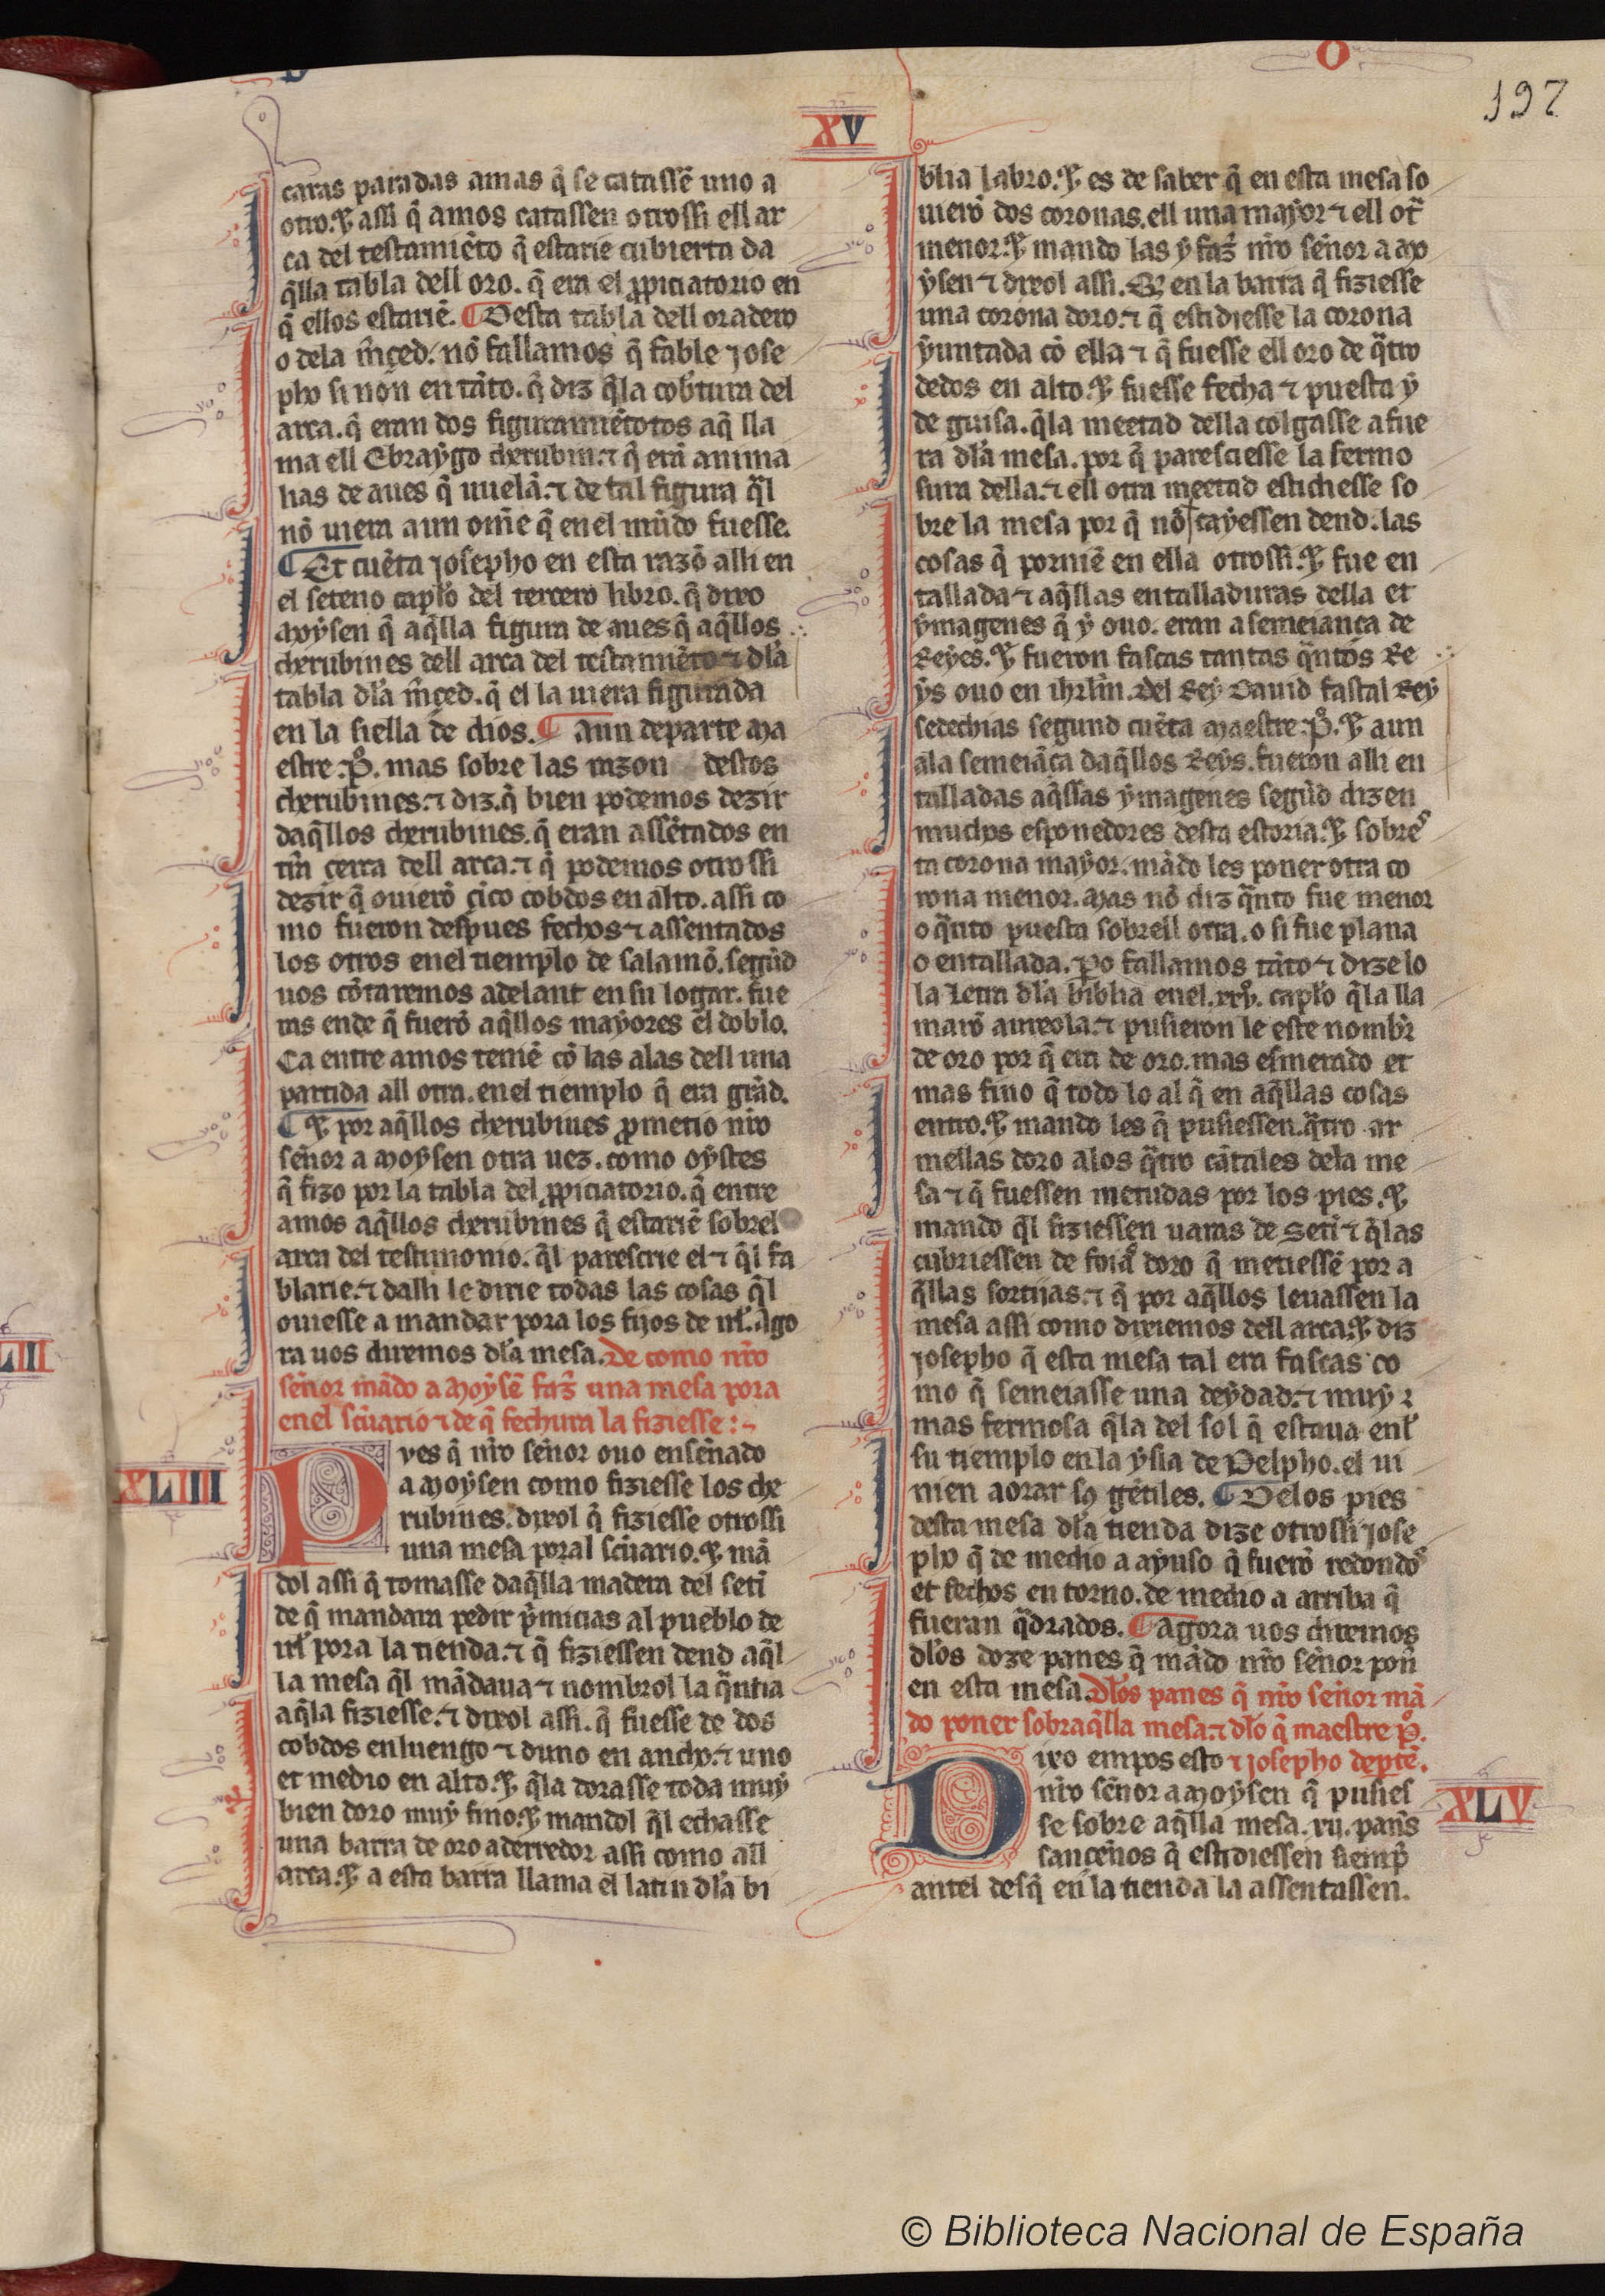 O
197
XV
caras paradas amas q̃ se catassẽ uno a
otro. ⁊ assi q̃ amos catassen otrossi ell ar
ca del testamiẽto q̃ estarie cubierta da
q̃lla tabla dell oro. q̃ era el ꝓpiciatorio en
q̃ ellos estariẽ. ¶ Desta tabla dell oradero
o dela m̃çed. nõ fallamos q̃ fable Jose
pho si non en tãto. q̃ diz q̃la cob̃tura del
arca. q̃ eran dos figuramiẽtotos aq̃ lla
ma ell Ebraẏgo cherubin. ⁊ q̃ erã anima
lias de aues q̃ uuelã. ⁊ de tal figura q̃l
nõ uiera aun om̃e q̃ en el mũdo fuesse.
¶ Et cuẽta Josepho en esta razõ alli en
el seteno capl̃o del tercero libro. q̃ dixo
Moẏsen q̃ aq̃lla figura de aues q̃ aq̃llos
cherubines dell arca del testamiẽto ⁊ dl̃a
tabla dl̃a m̃çed. q̃ el la uiera figurada
en la siella de dios. ¶ Aun departe Ma
estre .P̃. mas sobre las razon destos
cherubines. ⁊ diz. q̃ bien podemos dezir
daq̃llos cherubines. q̃ eran assẽtados en
tr̃ra cerca dell arca. ⁊ q̃ podemos otrossi
dezir q̃ ouierõ çĩco cobdos en alto. assi co
mo fueron despues fechos ⁊ assentados
los otros enel tiemplo de salamõ. segũd
uos cõtaremos adelant en su logar. fue
ras ende q̃ fuerõ aq̃llos maẏores el doblo.
Ca entre amos teniẽ cõ las alas dell una
partida all otra. enel tiemplo q̃ era grãd.
¶ ⁊ por aq̃llos cherubines ꝓmetio nr̃o
señor a Moẏsen otra uez. como oẏstes
q̃ fizo por la tabla del ꝓpiciatorio. q̃ entre
amos aq̃llos cherubines q̃ estariẽ sobrel
arca del testimonio. q̃l parescrie el ⁊ q̃l fa
blarie. ⁊ dalli le dirie todas las cosas q̃l
ouiesse a mandar pora los fijos de irl̃. Ago
ra uos diremos dl̃a mesa. De como nr̃o
señor mãdo a Moẏsẽ faz̃ una mesa pora
enel sc̃uario ⁊ de q̃ fechura la fiziesse :~
XLIIII
Pves q̃ nr̃o señor ouo enseñado
a Moẏsen como fiziesse los che
rubines. dixol q̃ fiziesse otrossi
una mesa poral sc̃uario. ⁊ mã
dol assi q̃ tomasse daq̃lla madera del setĩ
de q̃ mandara pedir p̃micias al pueblo de
irl̃ pora la tienda. ⁊ q̃ fiziessen dend aq̃l
la mesa q̃l mãdaua ⁊ nombrol la q̃ntia
aq̃la fiziesse. ⁊ dixol assi. q̃ fuesse de dos
cobdos enluengo ⁊ duno en ancho. ⁊ uno
et medio en alto. ⁊ q̃la dorasse toda muẏ
bien doro muẏ fino. ⁊ mandol q̃l echasse
una barra de oro aderredor assi como all
arca. ⁊ a esta barra llama el latin dl̃a bi
blia labro. ⁊ es de saber q̃ en esta mesa so
uierõ dos coronas. ell una maẏor ⁊ ell ot̃
menor. ⁊ mando las ẏ faz̃ nr̃o señor a Mo
ẏsen ⁊ dixol assi. Et en la barra q̃ fiziesse
una corona doro. ⁊ q̃ estidiesse la corona
ẏuntada cõ ella ⁊ q̃ fuesse ell oro de q̃tro
dedos en alto. ⁊ fuesse fecha ⁊ puesta ẏ
de guisa. q̃la meetad della colgasse afue
ra dl̃a mesa. por q̃ paresciesse la fermo
sura della. ⁊ ell otra meetad estidiesse so
bre la mesa por q̃ nõ caẏessen dend. las
cosas q̃ porniẽ en ella otrossi. ⁊ fue en
tallada ⁊ aq̃llas entalladuras della et
ẏmagenes q̃ ẏ ouo. eran asemeiança de
Reẏes. ⁊ fueron fascas tantas q̃ntos Re
ẏs ouo en ihrl̃m. del Reẏ Dauid fastal Reẏ
sedechias segund cuẽta Maestre .P̃. ⁊ aun
ala semeiãça daq̃llos Reẏs. fueron alli en
talladas aq̃ssas ẏmagenes segũd dizen
muchos esponedores desta estoria. ⁊ sobres
ta corona maẏor. mãdo les poner otra co
rona menor. Mas nõ diz q̃nto fue menor
o q̃nto puesta sobrell otra. o si fue plana
o entallada. ꝑo fallamos tãto ⁊ dizelo
la Letra dl̃a biblia enel .xxv. capl̃o q̃la lla
marõ aureola. ⁊ pusieron le este nombr̃
de oro por q̃ era de oro. mas esmerado et
mas fino q̃ todo lo al q̃ en aq̃llas cosas
entro. ⁊ mando les q̃ pusiessen. q̃tro ar
mellas doro alos q̃tro cãtales dela me
sa ⁊ q̃ fuessen metudas por los pies. ⁊
mando q̃l fiziessen uaras de Setĩ ⁊ q̃las
cubriessen de foias doro q̃ metiessẽ por a
q̃llas sortijas. ⁊ q̃ por aq̃llos leuassen la
mesa assi como dixiemos dell arca. ⁊ diz
Josepho q̃ esta mesa tal era fascas co
mo q̃ semeiasse una deẏdad. ⁊ muẏ
mas fermosa q̃la del sol q̃ estaua enl̃
su tiemplo en la ẏsla de Delpho. el ui
nien aorar sẏ gẽtiles. ¶ Delos pies
desta mesa dl̃a tienda dize otrossi Jose
pho q̃ de medio a aẏuso q̃ fuerõ redondos
et fechos en torno. de medio a arriba q̃
fueran q̃drados. ¶ Agora uos diremos
dl̃os doze panes q̃ mãdo nr̃o señor poñ
en esta mesa. Dl̃os panes q̃ nr̃o señor mã
do poner sobraq̃lla mesa. ⁊ dl̃o q̃ maestre P̃.
⁊ Josepho deptẽ.
XLV
Dixo empos esto
nr̃o señor a Moẏsen q̃ pusies
se sobre aq̃lla mesa .xij. pañs
sanceños q̃ estidiessen siemp̃
antel desq̃ en la tienda la assentassen.
© Biblioteca Nacional de España